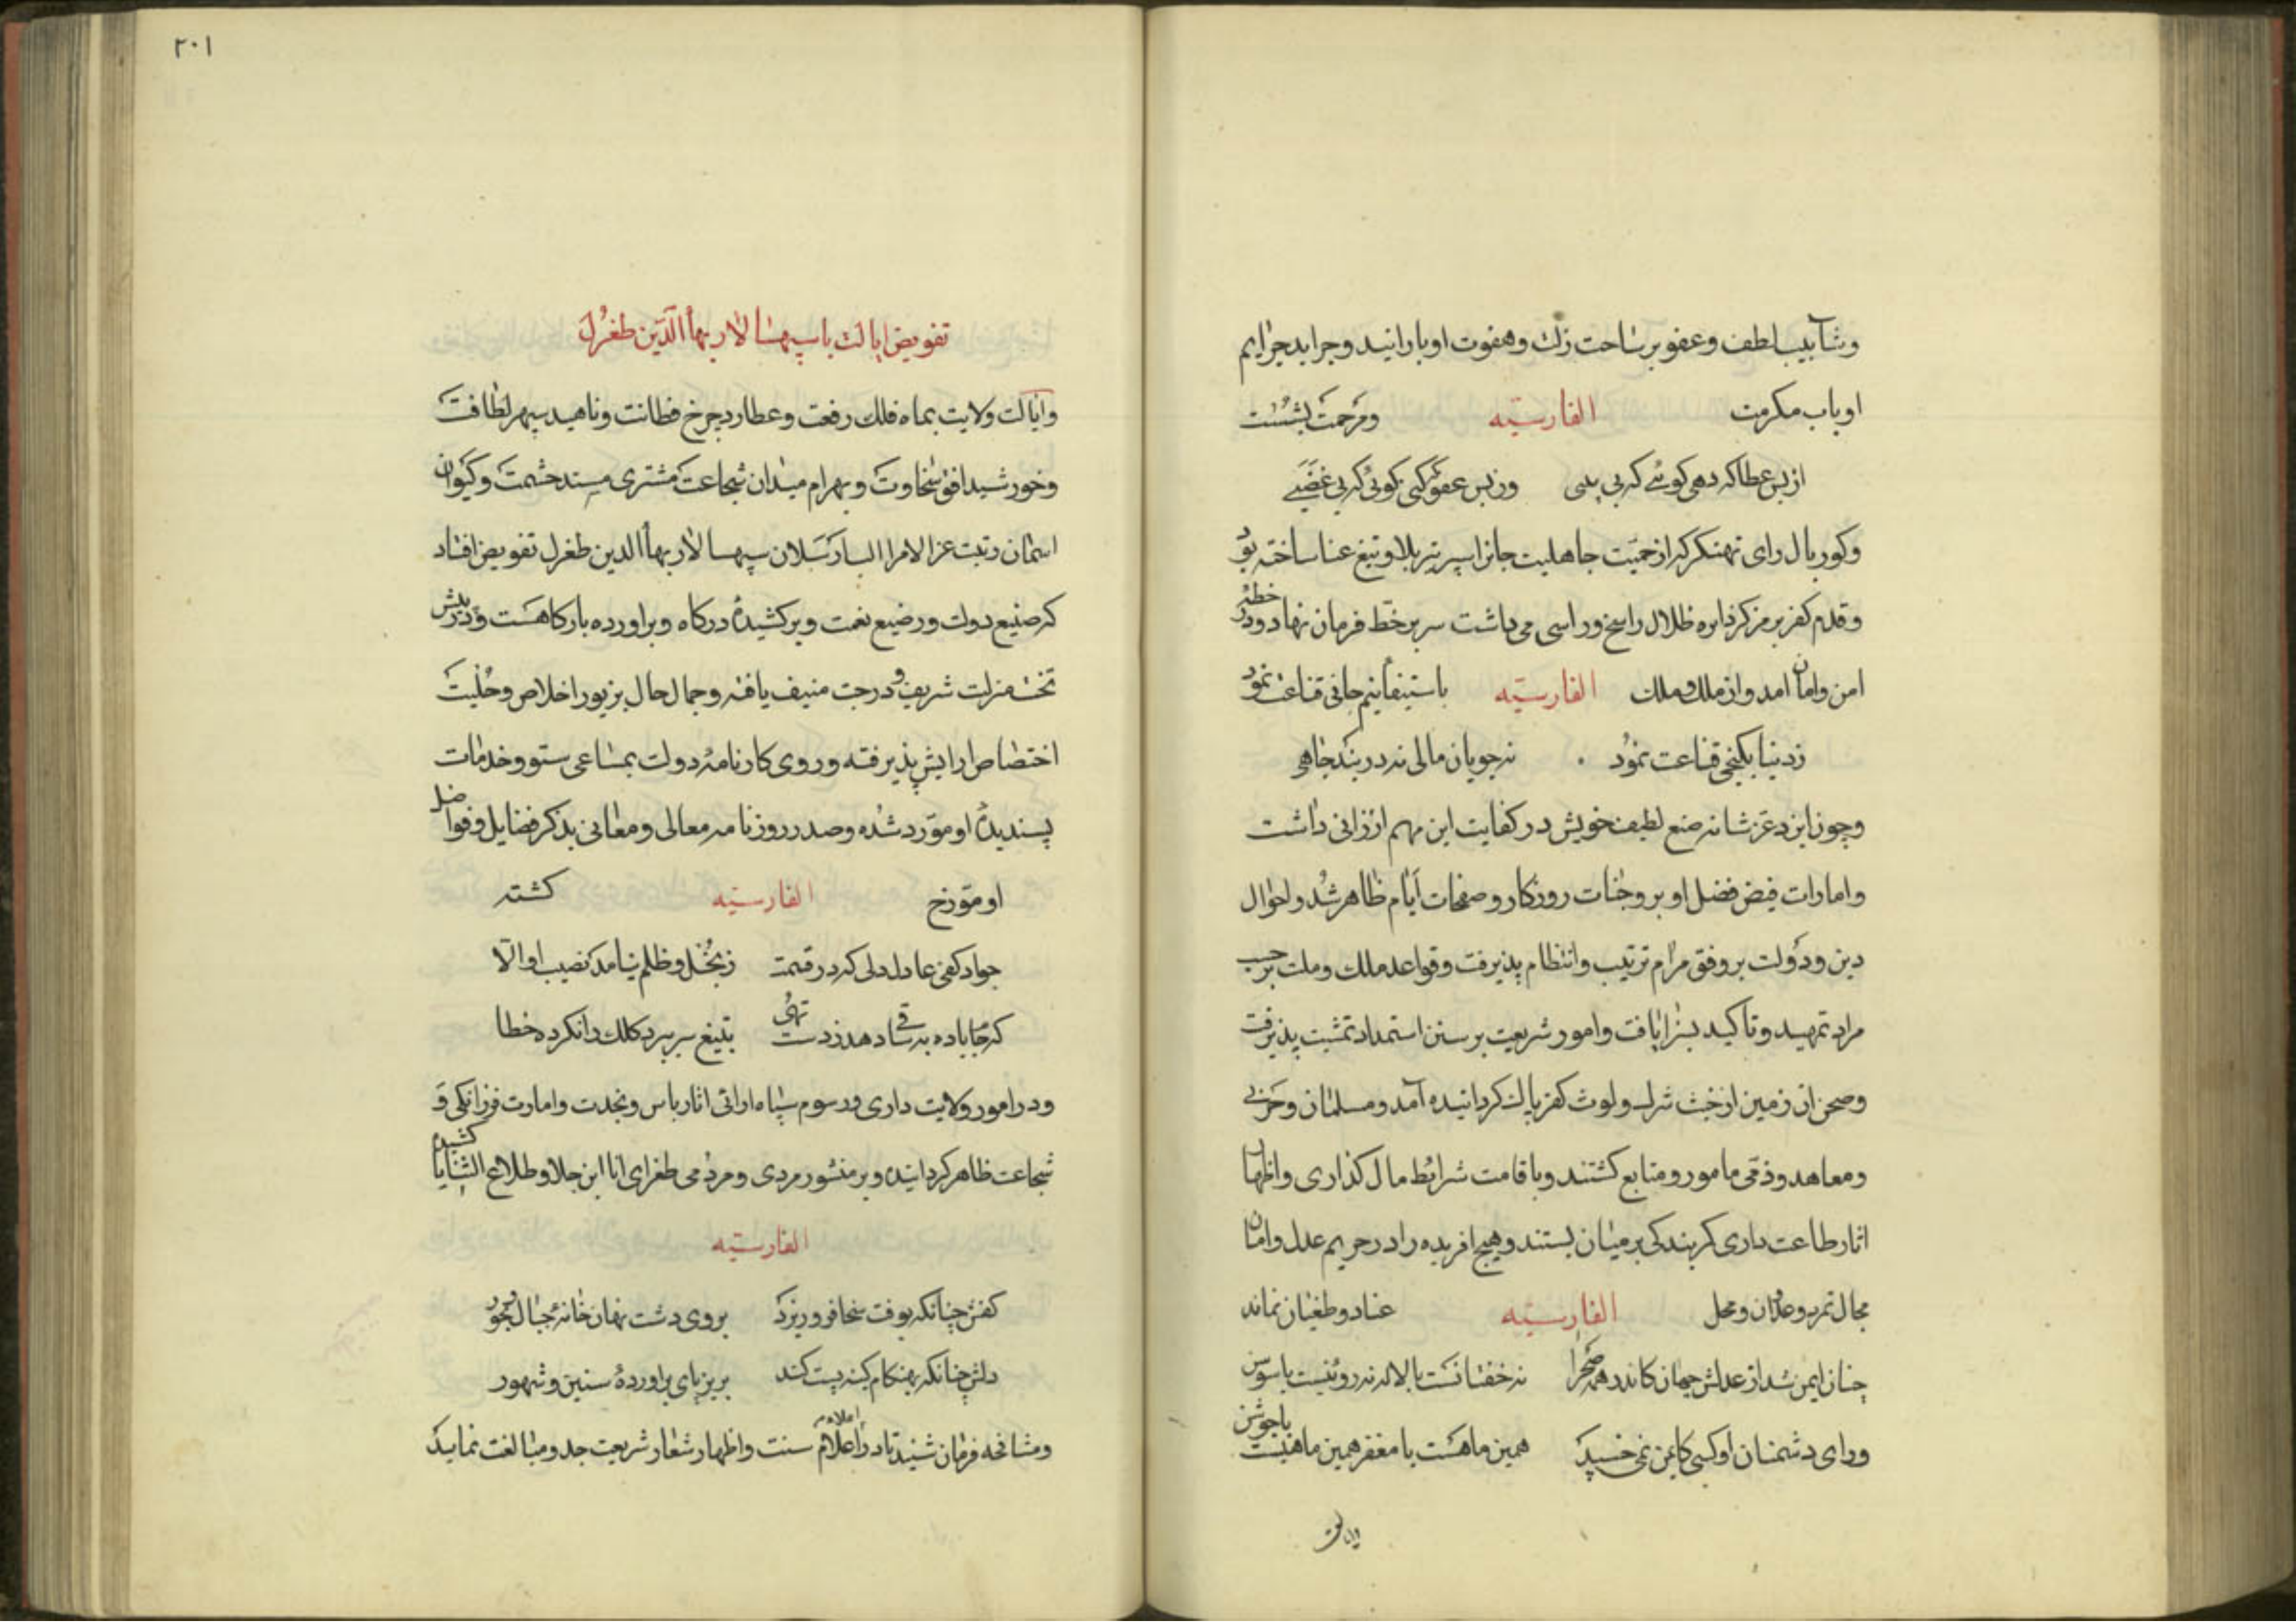 وشآبیب لطف وعفو بر ساحت زلت وهفوت او بارانید وجراید جرایم
او باب مکرمت الفارسیّه ومرحمت بشست
از بس عطا که دهی کوئی که بی
وز بس عفو کنی کوئی که بی غضبی
وکوربال رای تهنکر که از حمیّت جاهلیت جانرا سپر تیر بلا و تیغ عنا ساخته بود
وقدم کفر بر مرکز دایره ظلال راسخ وراسی می داشت سر بر خطّ فرمان نهاد ودر خطّه
امن وامان امد واز ملک وملک الفارسیّه باستبقأ نیم جانی قناعت نمود
زدنیا بکنجی قناعت نمود نه جویان مالی نه دربند جاهی
وچون ایزد عزّ شانه صنع لطیف خویش در کفایت این مهم ارزانی داشت
وامارات فیض فضل او بر وجنات روزکار وصفحات ایّام ظاهر شد واحوال
دین ودولت بر وفق مرام ترتیب وانتظام پذیرفت وقواعد ملک وملت بر حسب
مراد تمهید وتاکید بسزا یافت وامور شریعت بر سنن استمداد تمشیت پذیرفت
وصحن ان زمین از خبث شرک ولوث کفر پاک کردانیده آمد ومسلمان وحربی
ومعاهد وذمّی مامور ومتابع کشتند وباقامت شرایط مال کذاری واظهار
اثار طاعت داری کمر بندکی بر میان بستند وهیچ افریده را در حریم عدل وامان
مجال تمرد وعدوان ومحل الفارسیّه عناد وطغیان نماند
چنان ایمن شد از عدلش جهان کاندر همه صحرا نه خفتانست با لاله نه روئنیست با سوسن
ورای دشمنان او کسی کایمن نمی خسپد همین ماهست با مغفر همین ماهیست باجوشن
ایالت
٢٠١
تفویض ایالت باسپهسالار بهاأالدّین طغرُل
وایالت ولایت بماه فلک رفعت وعطارد چرخ فطانت وناهید سپهر لطافت
وخورشید افق سخاوت وبهرام میدان شجاعت مشتری مسند حشمت وکیوان
اسمان رتبت عزالامرا الب ارسلان سپهسالار بهاأالدین طغرل تفویض افتاد
که صنیع دولت ورضیع نعمت وبرکشیدهٔ درکاه وبراورده بارکاهست
تخت منزلت شریف ودرجت منیف یافته وجمال حال بزیور اخلاص وحُلیت
اختصاص ارایش پذیرفته وروی کارنامهٔ دولت بمساعی ستوو خدمات
پسندیدهٔ او مورّد شده وصدر روزنامه معالی ومعانی بذکر فضایل وفواضل
او مورّخ الفارسیّه کشته
جواد کفی عادل دلی که در قسمت زبُخل وظلم نیامد نصیب او الّا
که جاباده به ساقی دهد زدست تهی بتیغ سر ببرد کلک را نکرده خطا
ودر امور ولایت داری ورسوم سپاه ارائی اثار باس ونجدت وامارت فرزانکی و
شجاعت ظاهر کردانیده وبر منشور مردی ومردمی طغرای انا ابن جلا وطلاع الثنایا کشیده
الفارسیّه
کفش چنانکه بوقت سخا فرو ریزد بروی دشت نهان خانهٔ جبال وبحور
دلش چنانکه بهنکام کینه پست کند بریز پای براوردهٔ سنین وشهور
ومشافحه فرمان شنید تا در اعلام اعلام سنت واظهار شعار شریعت جد ومبالغت نماید